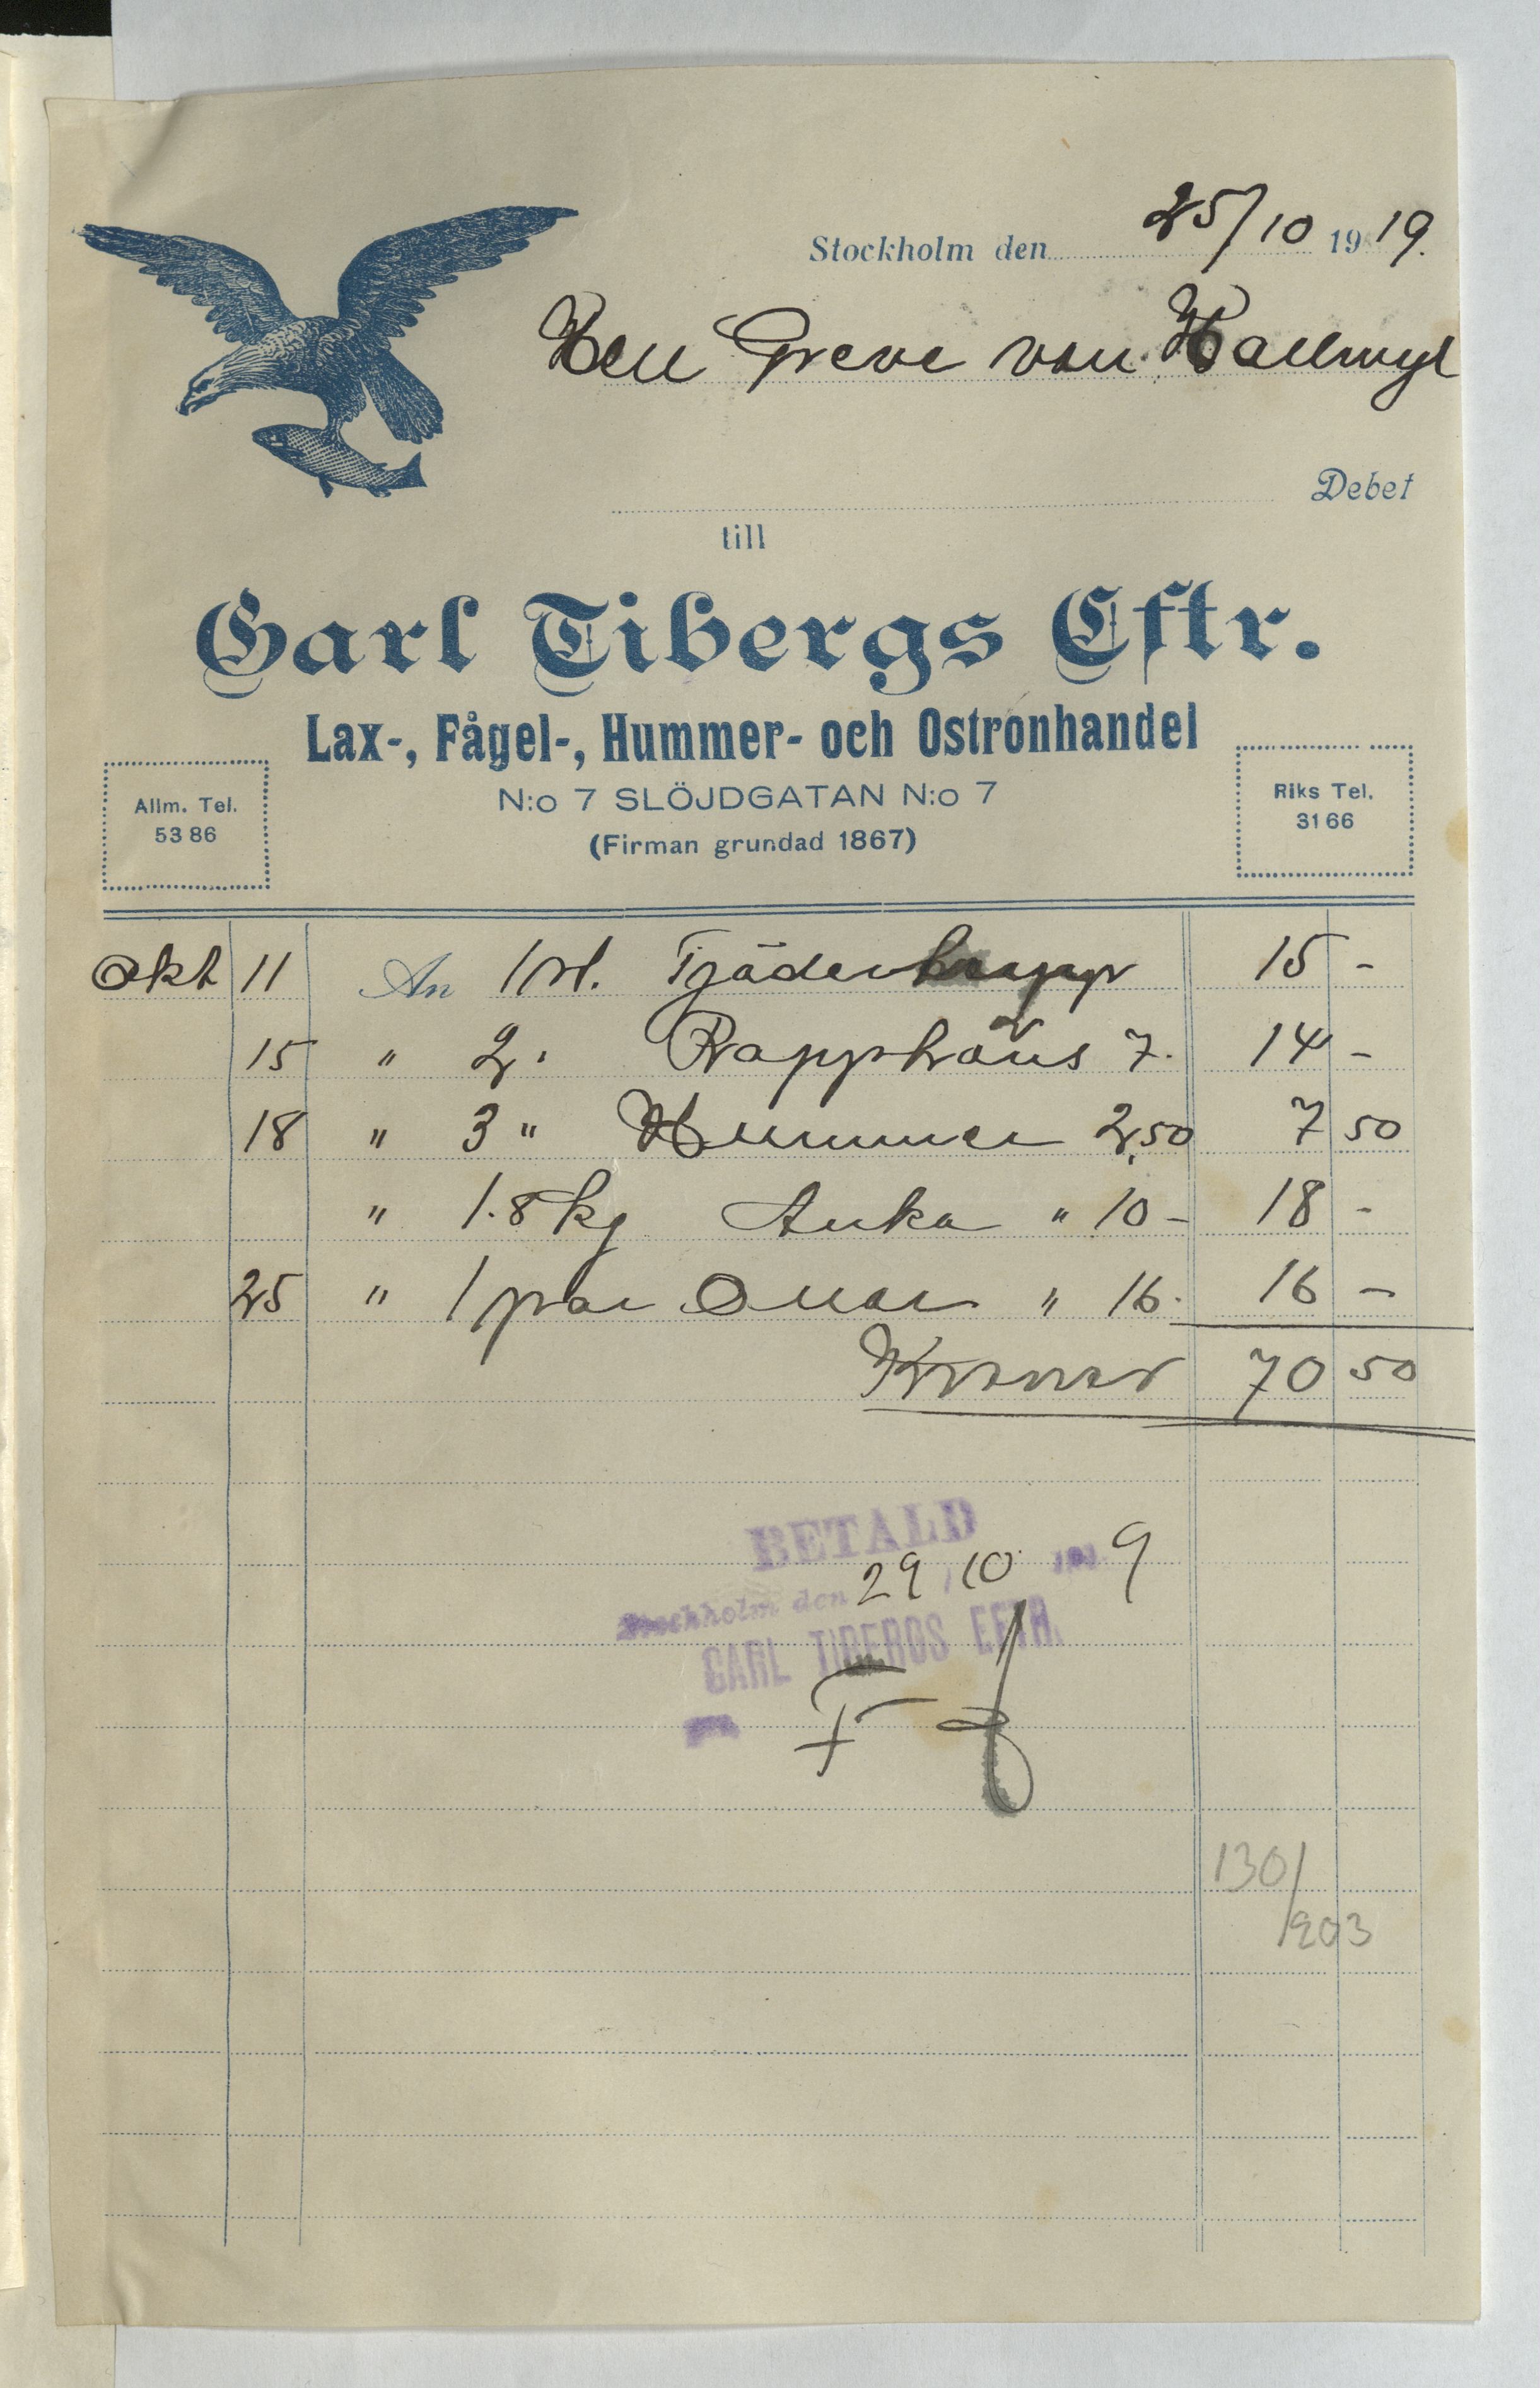 Stockholm den 25/10 1919.
Herr Greve von Hallwyl
Debet
till
Carl Tibergs Eftr.
Lax-, Fågel-, Hummer- och Ostronhandel
N:o 7 SLÖJDGATAN N:o 7
(Firman grundad 1867)
Allm. Tel.
53 86
Riks Tel.
31 66
Okt 11 An 1 st. Tjädertupp 15 -
15 " 2 " Rapphöns 7. 14 -
18 " 3 " Hummer 2,50 7 50
" 1.8 kg Anka " 10 - 18 -
25 " 1 par Orrar " 16. 16 -
Kronor 70 50
BETALD
Stockholm den 29/10 191 9
CARL TIBERGS EFTR.
130/
203